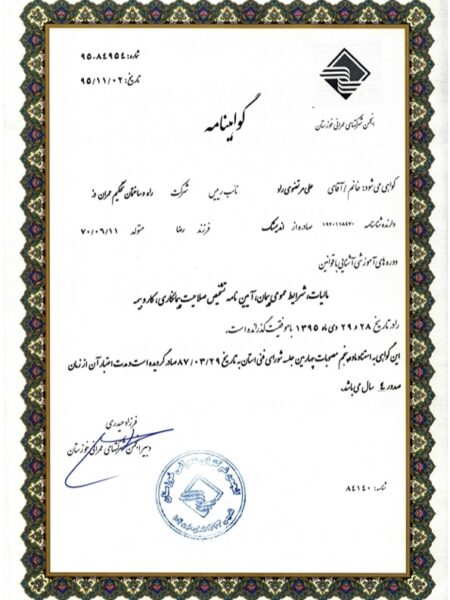 شماره: ۸۴۹۵۴-۹۵
تاریخ: ۹۵/۱۱/۰۲
انجمن شرکتهای عمرانی خوزستان
گواهینامه
گواهی می شود: خانم / آقای علی مرتضوی راد نائب رییس شرکت راه و ساختمان تحکیم عمران دز
دارنده شناسنامه ۱۹۲۰۱۱۸۴۷۰ صادره از اندیمشک فرزند رضا متولد ۷۰/۰۶/۱۱
دوره های آموزشی آشنایی با قوانین
مالیات، شرایط عمومی پیمان، آیین نامه تشخیص صلاحیت پیمانکاری، کار و بیمه
را در تاریخ ۲۸ و ۲۹ دی ماه ۱۳۹۵ با موفقیت گذرانده است.
این گواهی به استناد ماده پنجم مصوبات چهارمین جلسه شورای فنی استان به تاریخ ۸۷/۰۳/۲۹ صادر گردیده است و مدت اعتبار آن از زمان
صدور ٤ سال می باشد.
فرزاد حیدری
دبیر انجمن شرکتهای عمرانی خوزستان
شناسه: ۸٤۱٤۰